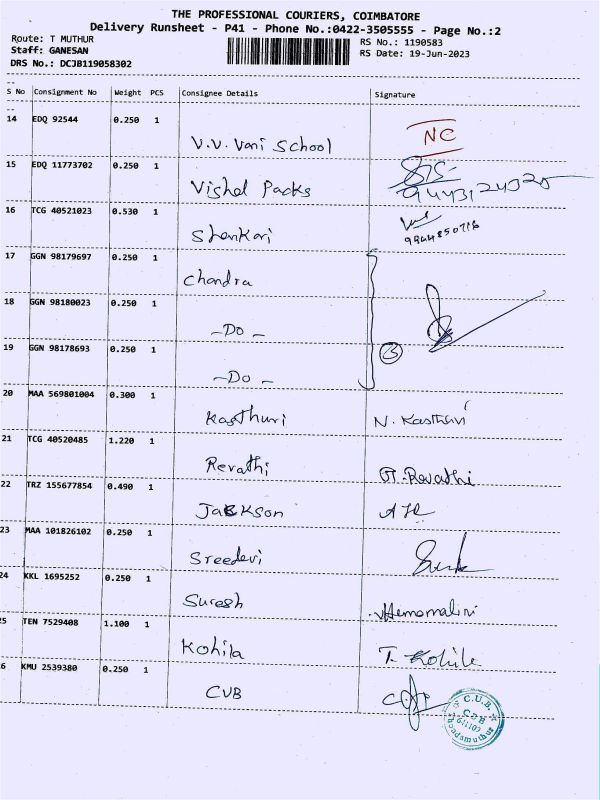 THE PROFESSIONAL COURIERS, COIMBATORE
Delivery Runsheet - P41 - Phone No.:0422-3505555 - Page No.:2
Route: T MUTHUR
RS No.: 1190583
Staff: GANESAN
RS Date: 19-Jun-2023
DRS No.: DCJB119058302
S No Consignment No Weight PCS Consignee Details Signature
14 EDQ 92544 0.250 1
V.V. Vani School NC
15 EDQ 11773702 0.250 1
Vishal Packs
16 TCG 40521023 0.530 1
Shankari
17 GGN 98179697 0.250 1
Chandra
18 GGN 98180023 0.250 1
-Do-
19 GGN 98178693 0.250 1
-Do- 3
20 MAA 569801004 0.300 1
Kasthuri N. Kasthuri
21 TCG 40520485 1.220 1
Revathi Revathi
22 TRZ 155677854 0.490 1
Jackson
23 MAA 101826102 0.250 1
Sreedevi
24 KKL 1695252 0.250 1
Suresh Hemamalini
5 TEN 7529408 1.100 1
Kohila T. Kohila
6 KMU 2539380 0.250 1
CUB
C.U.B.